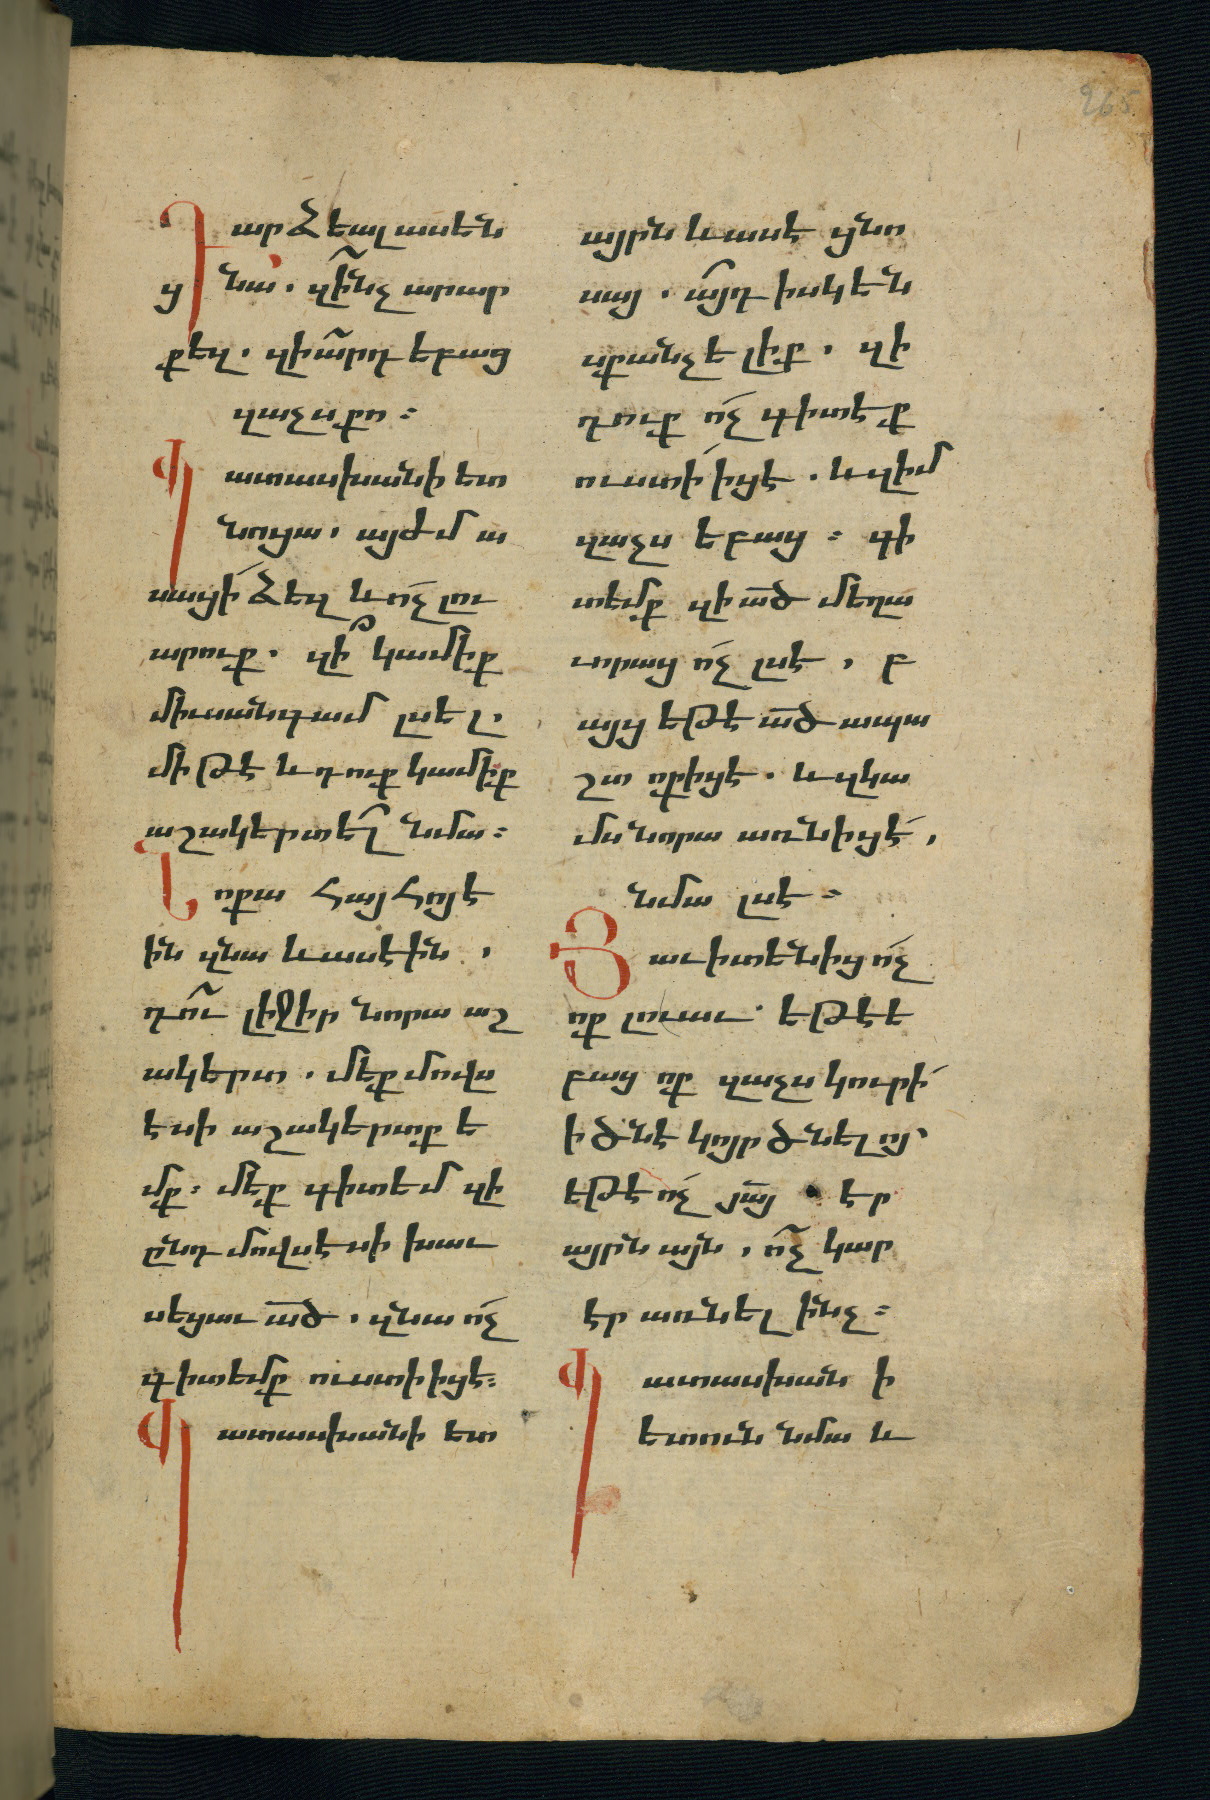 Դարձեալ ասեն
ց նա. զի՞նչ արար
քեզ. զիա՞րդ եբաց
զաչս քո։
Պատասխանի ետ
նոցա. այժմ ա
սացի՛ ձեզ և ո՛չ լու
արուք. զի՞ կամիք
միւսանգամ լսել.
մի թէ և դուք կամիք
աշակերտե՞լ նմա։
Նոքա հայհոյէ
ին զնա և ասէին,
դո՞ւ լիջիր նորա աշ
ակերտ. մեք մովս
էսի աշակերտք ե
մք։ մեք գիտեմ զի
ընդ մովսէսի խաւ
սեցաւ ա̅ծ, զնա ո՛չ
գիտեմք ուստի իցէ։
Պատասխանի ետ
265
այրն և ասէ ցնո
սա. ա՞յդ իսկ են
սքանչելիք. զի
դուք ո՛չ գիտէք
ուստի՛ իցէ. և զիմ
զաչս եբաց։ գի
տեմք զի ա̅ծ մեղա
ւորաց ո՛չ լսէ, բ
այց եթէ ա̅ծ ապա
շտ ոք իցէ. և զկա
մս նորա առնիցէ՛,
նմա լսէ։
Յաւիտենից ո՛չ
ոք լուաւ. եթէ ե
բաց ոք զաչս կուրի՛
ի ծնէ կոյր ծնելոյ՝
եթէ ո՛չ յա̅յ էր
այրն այն, ո՞չ կար
էր առնել ինչ։
Պատասխանի
ետուն նմա և